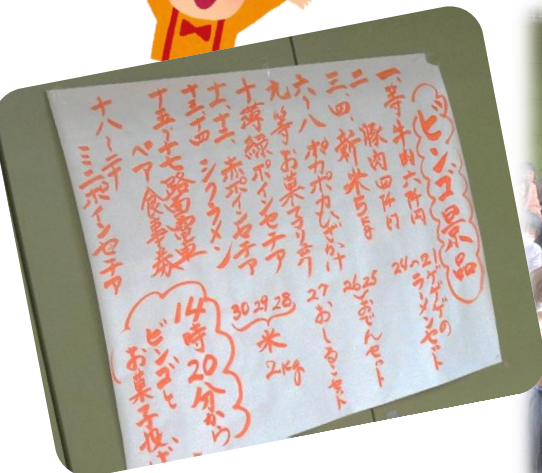 ビンゴ景品
一等 牛肉六千円
二 豚肉四千円
三、四、新米5kg
六〜八 ポカポカひざかけ
九等 お菓子
十 薄緑ポインセチア
十一、十二、赤ポインセチア
十三、十四 シクラメン
十五〜十七 路面電車
ペア食事券
十八〜二十
ミニポインセチア
21〜24 ゲゲゲの
ラーメンセット
25 26 おでんセット
27 おしるこセット
28 29 30 米
2kg
14時20分から
ビンゴと
お菓子投げ